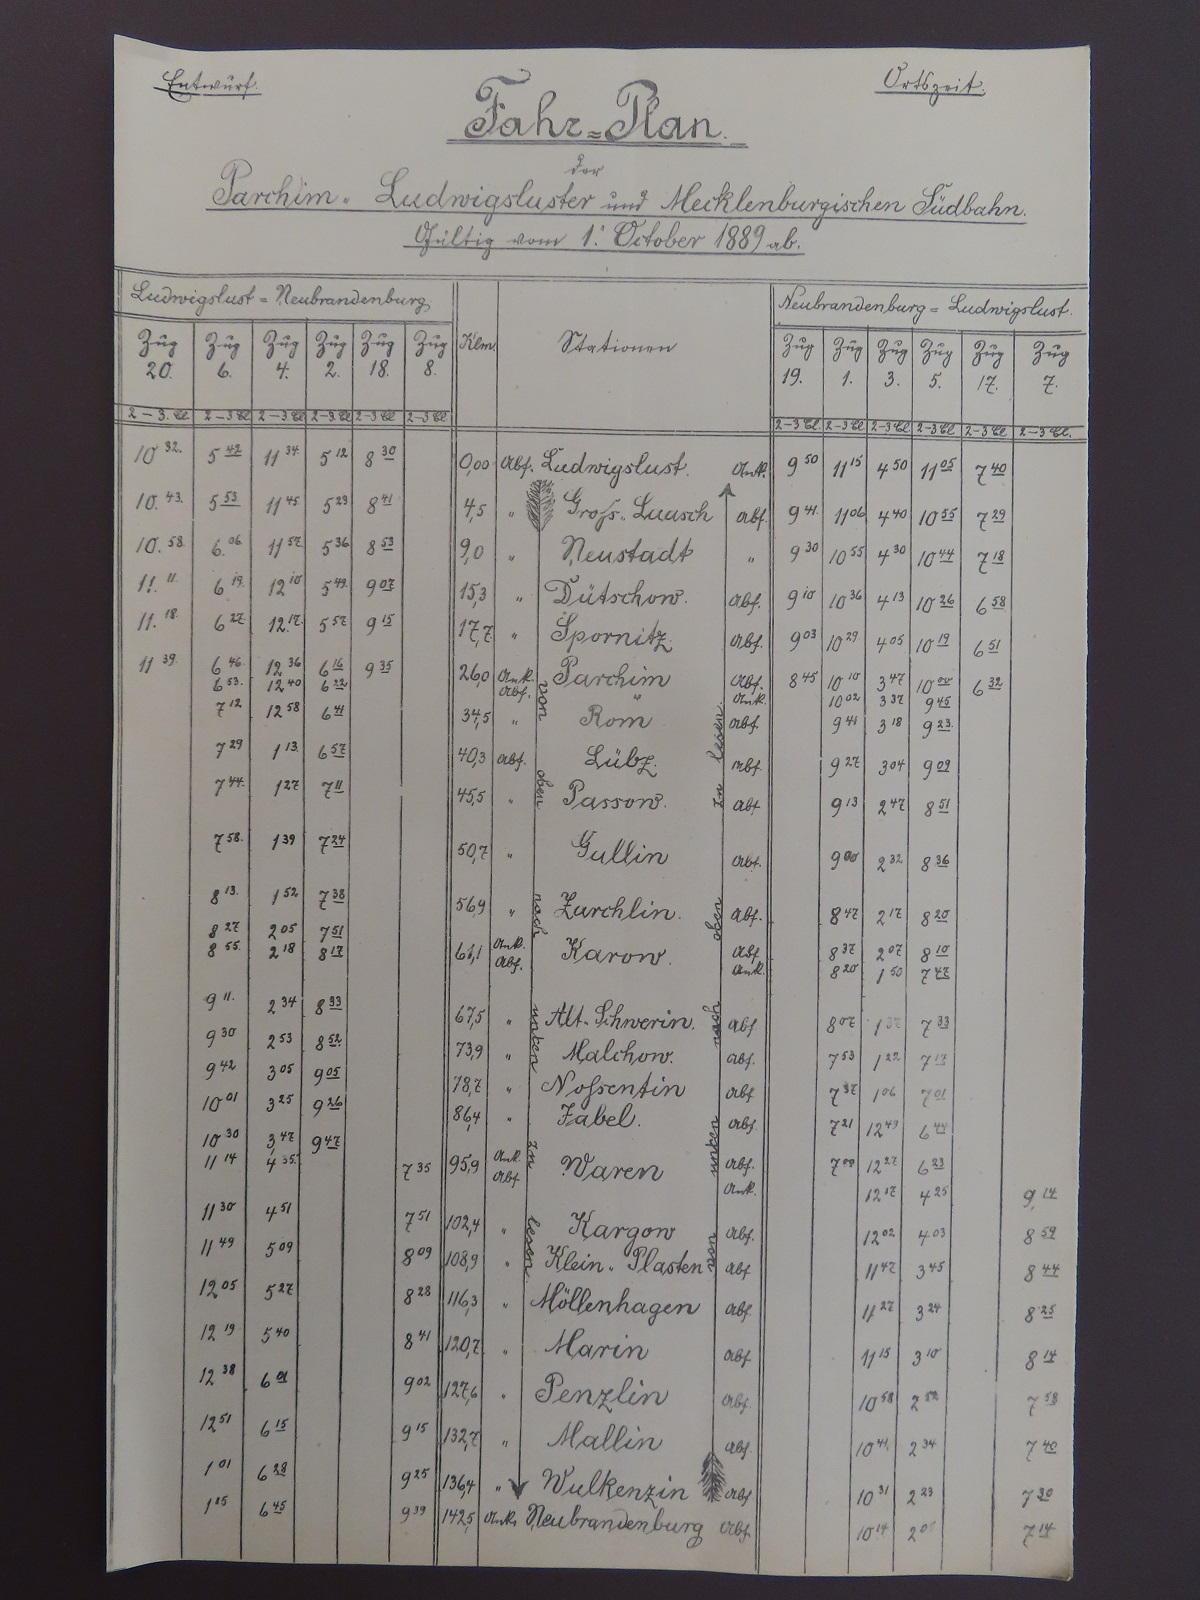 Entwurf.
Ortszeit.
Fahr=Plan.
der
Parchim- Ludwigsluster und Mecklenburgischen Südbahn.
Gültig vom 1. October 1889 ab.
Ludwigslust = Neubrandenburg
Klm.
Stationen
Neubrandenburg = Ludwigslust.
Zug 20. Zug 6. Zug 4. Zug 2. Zug 18. Zug 8.
Zug 19. Zug 1. Zug 3. Zug 5. Zug 17. Zug 7.
2-3. Cl 2-3 Cl 2-3 Cl 2-3 Cl 2-3 Cl 2-3 Cl
2-3 Cl 2-3 Cl 2-3 Cl 2-3 Cl 2-3 Cl 2-3 Cl.
10 32. 5 42 11 34 5 12 8 30 0,00 Abf. Ludwigslust. Ank. 9 50 11 15 4 50 11 05 7 40
10. 43. 5 53 11 45 5 23 8 41 4,5 " Gross- Laasch Abf. 9 41. 11 06 4 40 10 55 7 29
10. 58. 6. 06 11 57 5 36 8 53 9,0 " Neustadt " 9 30 10 55 4 30 10 44 7 18
11. 11. 6 19. 12 10 5 49. 9 07 15,3 " Dütschow. Abf. 9 10 10 36 4 13 10 26 6 58
11. 18. 6 27 12. 17. 5 57 9 15 17,7 " Spornitz Abf. 9 03 10 29 4 05 10 19 6 51
11 39. 6 46. 12 36 6 16 9 35 26,0 Ank. Parchim Abf. 8 45 10 10 3 47 10 00 6 32
6 53. 12 40 6 22 Abf. " Ank. 10 02 3 37 9 45
7 12 12 58 6 41 34,5 " Rom Abf. 9 41 3 18 9 23.
7 29 1 13. 6 57 40,3 Abf. Lübz. Abf. 9 27 3 04 9 09
7 44. 1 27 7 11 45,5 " Passow. Abf 9 13 2 47 8 51
7 58. 1 39 7 24 50,7 " Gallin Abf. 9 00 2 32 8 36
8 13. 1 52 7 38 56,9 " Zarchlin. Abf. 8 47 2 17 8 20
8 27 2 05 7 51 61,1 Ank. Karow. Abf 8 37 2 07 8 10
8 55. 2 18 8 17 Abf. Ank. 8 20 1 50 7 47
9 11. 2 34 8 33 67,5 " Alt- Schwerin. Abf 8 07 1 37 7 33
9 30 2 53 8 52 73,9 " Malchow. Abf. 7 53 1 22 7 17
9 42 3 05 9 05 78,7 " Nossentin Abf 7 37 1 06 7 01
10 01 3 25 9 26 86,4 " Jabel. Abf 7 21 12 49 6 44
10 30 3 47 9 47 95,9 Ank. Waren Abf. 7 00 12 27 6 23
11 14 4 35 7 35 Abf Ank. 12 17 4 25 9 14
11 30 4 51 7 51 102,4 " Kargow Abf. 12 02 4 03 8 59
11 49 5 09 8 09 108,9 " Klein- Plasten Abf 11 47 3 45 8 44
12 05 5 27 8 28 116,3 " Möllenhagen Abf. 11 27 3 24 8 25
12 19 5 40 8 41 120,7 " Marin Abf 11 15 3 10 8 14
12 38 6 01 9 02 127,6 " Penzlin Abf. 10 58 2 52 7 58
12 51 6 15 9 15 132,7 " Mallin Abf. 10 41. 2 34 7 40
1 01 6 28 9 25 136,4 " Wulkenzin Abf 10 31 2 23 7 30
1 25 6 45 9 39 142,5 Ank. Neubrandenburg Abf. 10 14 7 14
von oben nach unten zu lesen.
von unten nach oben zu lesen.